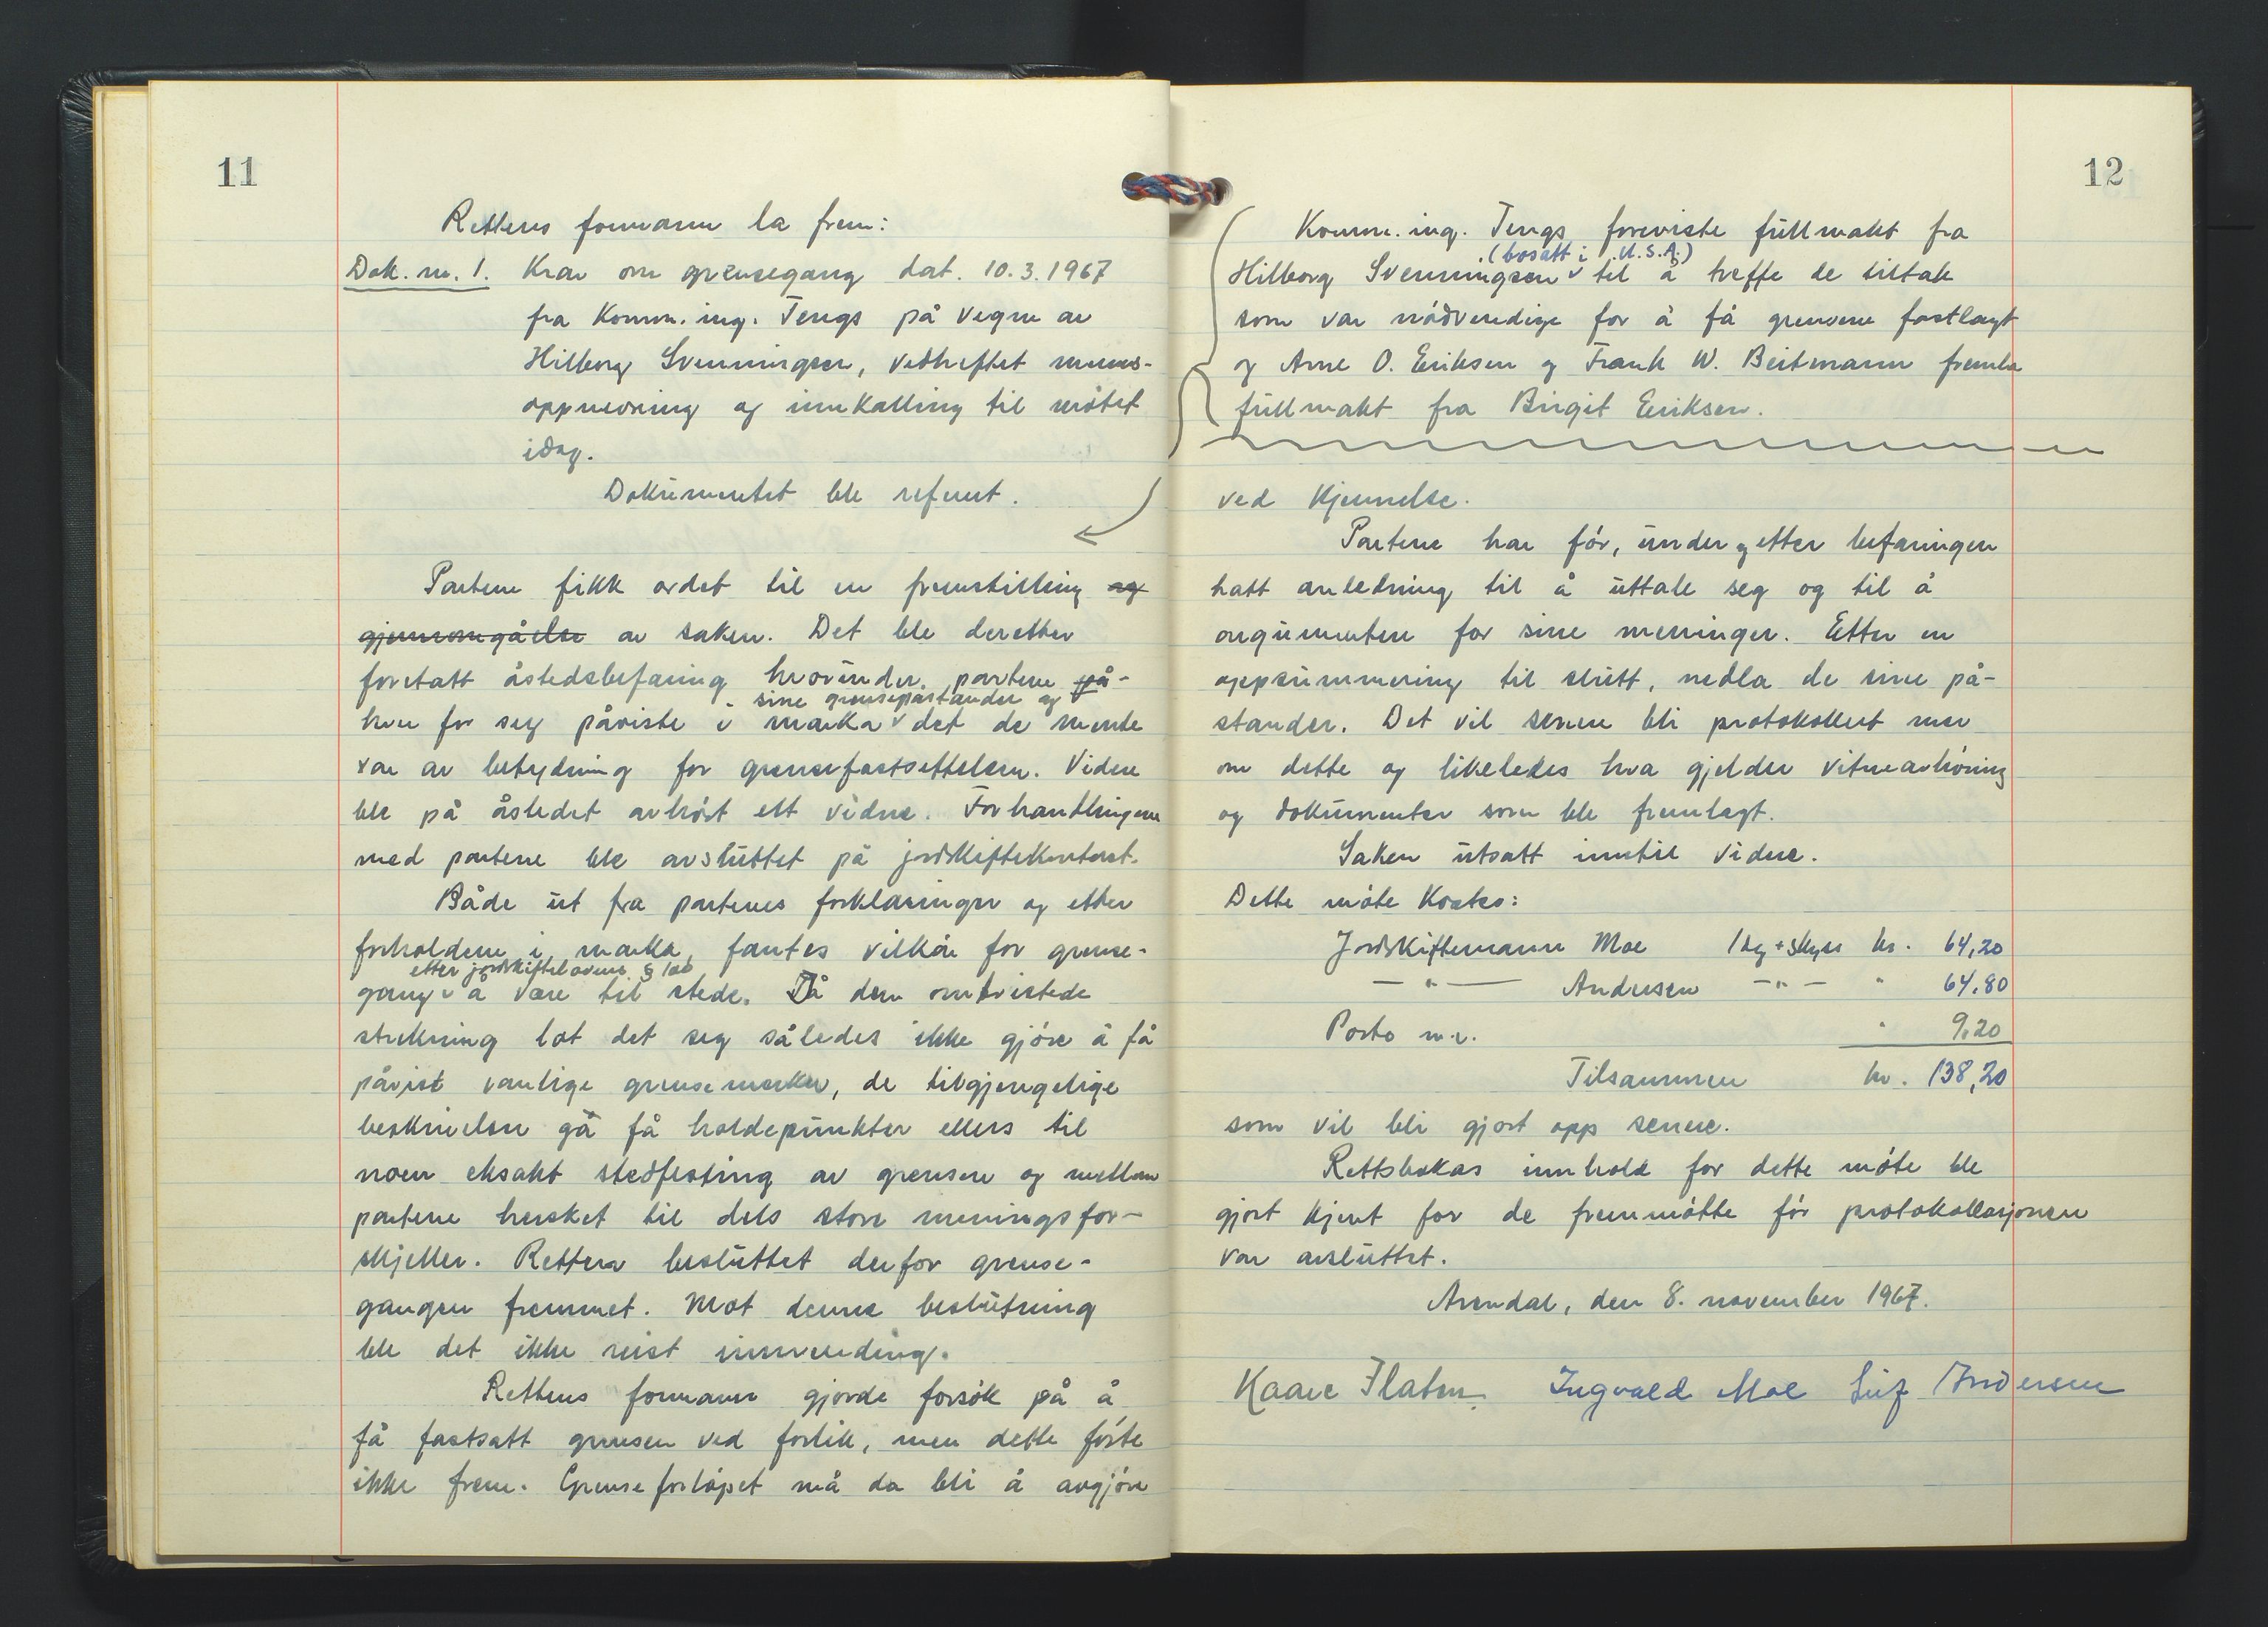 11
Rettens formann la frem:
Dok. nr. 1. Krav om grensegang dat. 10.3.1967
fra Komm. ing. Tengs på vegne av
Hilborg Svenningsen, vedheftet menns-
oppnevning og innkalling til møtet
idag.
Dokumentet ble referert.
Partene fikk ordet til en fremstilling og
gjennomgåelse av saken. Det ble deretter
foretatt åstedsbefaring hvorunder partene på-
sine grensepåstander og
hver for seg påviste i marka det de mente
var av betydning for grensefastsettelsen. Videre
ble på åstedet avhørt ett vidne. Forhandlingene
med partene ble avsluttet på jordskiftekontoret.
Både ut fra partenes forklaringer og etter
forholdene i marka, fantes vilkår for grense-
etter jordskiftelovens §
gang å være til stede. På den omtvistede
strekning lot det seg således ikke gjøre å få
påvist vanlige grensemerker, de tilgjengelige
beskrivelser gå få holdepunkter ellers til
noen eksakt stedfesting av grensene og mellom
partene hersket til dels store meningsfor-
skjeller. Retten besluttet derfor grense-
gangen fremmet. Mot denne beslutning
ble det ikke reist innvending.
Rettens formann gjorde forsøk på å
få fastsatt grensen ved forlik, men dette førte
ikke frem. Grenseforløpet må da bli å avgjøre
12
Komm. ing. Tengs foreviste fullmakt fra
(bosatt i U.S.A.)
Hilborg Svenningsen til å treffe de tiltak
som var nødvendige for å få grensene fastlagt
og Arne O. Eriksen og Frank W. Beitmann fremla
fullmakt fra Birgit Eriksen.
ved kjennelse.
Partene har før, under og etter befaringen
hatt anledning til å uttale seg og til å
argumentere for sine meninger. Etter en
oppsummering til slutt, nedla de sine på-
stander. Det vil senere bli protokollert mer
om dette og likeledes hva gjelder vitneavhøring
og dokumenter som ble fremlagt.
Saken utsatt inntil videre.
Dette møte kostes:
Jordskiftemann Moe 1 dg + skyss kr. 64,20
— " — Andersen — " — " 64.80
Porto m.v. " 9.20
Tilsammen kr. 138,20
som vil bli gjort opp senere.
Rettsbokas innhold for dette møte ble
gjort kjent for de fremmøtte før protokollasjonen
var avsluttet.
Arendal, den 8. november 1967.
Kaare Flaten Ingvald Moe Leif Andersen